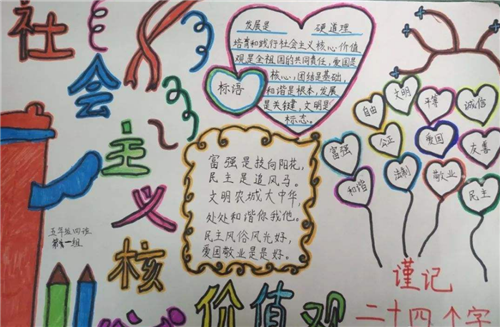 社会主义核心价值观
发展是 硬道理
培育和践行社会主义核心价值
观是全祖国的共同责任，爱国是
核心，团结是基础，
和谐是根本，发展
是关键，文明是
标志。
标语
富强是扶向阳花，
民主是追风马。
文明农城大中华，
处处和谐你我他。
民主风俗风光好，
爱国敬业是最好。
自由
文明
平等
诚信
富强
公正
爱国
友善
和谐
法制
敬业
民主
五年级四班
第一组
谨记
二十四个字